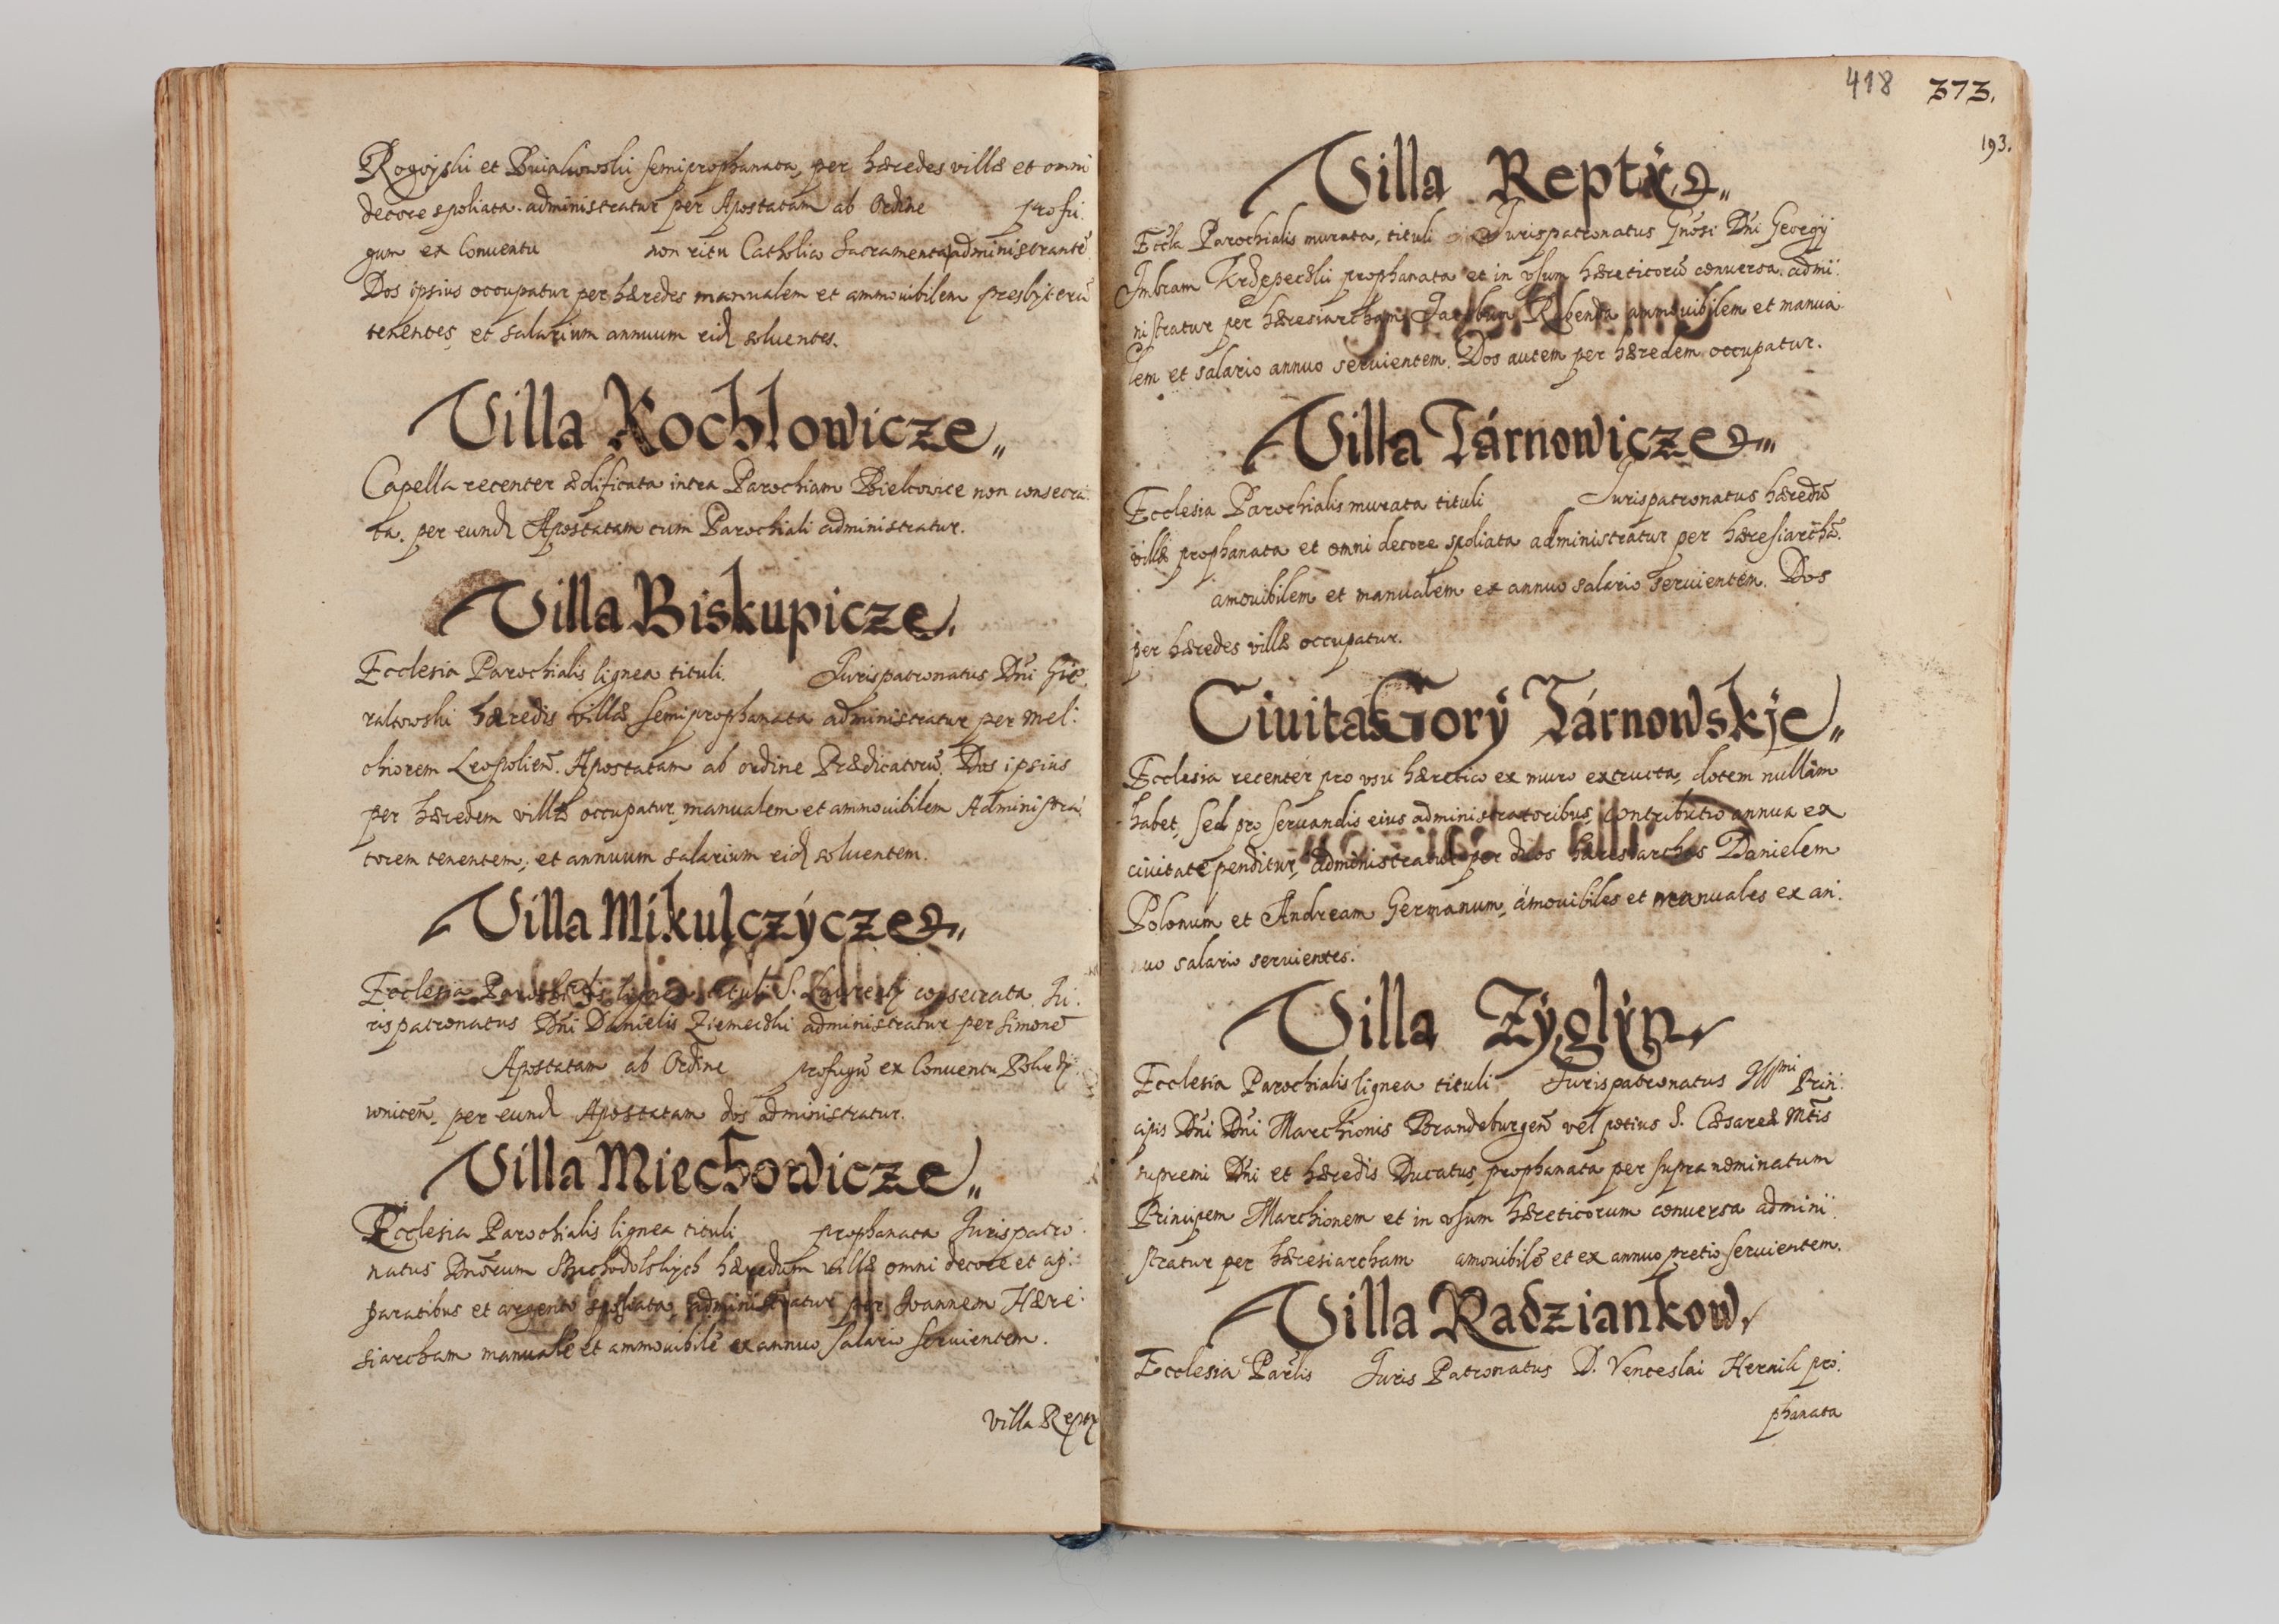 Rogoÿski et Buiakowskii semiprophanata, per hæredes villæ et omni
decore spoliata. administratur per Apostatam ab Ordine profu:
gum ex Conuentu non ritu Catholico Sacramenta administrantẽ.
Dos ipsius occupatur per hæredes manualem et ammouibilem presbÿterũ
tenentes, et salarium annuum eid soluentes.
Villa Kochlowicze
Capella recenter ædificata intra Parochiam Bielcowice non consecra:
ta. per eund Apostatam cum Parochiali administratur.
Villa Biskupicze
Ecclesia Parochialis lignea tituli. Jurispatronatus Dñi Gie:
raltowski hæredis villæ semiprophanata administratur per Mel:
chiorem Leopolien̄. Apostatam ab ordine Prædicatorũ. Dos ipsius
per hæredem villæ occupatur, manualem et ammouibilem Administra:
torem tenentem, et annuum salarium eid soluentem.
Villa Mikulczÿcze
Ecclesia Parochialis lignea tituli S. Laurentij consecrata. Ju:
rispatronatus Dñi Danielis administratur per Simonẽ
Apostatam ab Ordine profugũ ex Conuentu
wnicen̄. per eund Apostatam dos administratur.
Villa Miechowicze
Ecclesia Parochialis lignea tituli prophanata Jurispatro:
natus Dnõrum hæredum villæ omni decore et ap:
paratibus et argento spoliata, administratur per Joannem Hære:
siarcham manualẽ et ammouibilẽ ex annuo salario seruientem.
Villa Repty
418 373.
193.
Villa Reptÿ
Eccla Parochialis murata, tituli Jurispatronatus Gñosi Dñi Georgÿ
Imbram prophanata et in vsum hæreticorũ conuersa. admi:
nistratur per hæresiarcham Jacobum ammouibilem et manua:
lem et salario annuo seruientem. Dos autem per hæredem occupatur.
Villa Tárnowicze
Ecclesia Parochialis murata tituli Jurispatronatus hæredũ
villæ prophanata et omni decore spoliata administratur per hæresiarchã.
amouibilem et manualem ex annuo salario seruientem. Dos
per hæredes villæ occupatur.
Ciuitas Gorÿ Tárnowskje
Ecclesia recenter pro vsu hæretico ex muro extructa, dotem nullam
habet, sed pro seruandis eius administratoribus, contributio annua ex
ciuitate penditur, administratur per duos hæresiarchas Danielem
Polonum et Andream Germanum, ámouibiles et manuales ex an:
nuo salario seruientes.
Villa Zÿglÿn
Ecclesia Parochialis lignea tituli Jurispatronatus Illmi Prin:
cipis Dñi Dñi Marchionis Brandeburgen̄ vel potius S. Cæsareæ Mtis
supremi Dñi et hæredis Ducatus, prophanata per supra nominatum
Principem Marchionem et in vsum hæreticorum conuersa admini:
stratur per hæresiarcham amouibilẽ et ex annuo pretio seruientem.
Villa Radziankow
Ecclesia Parlis Juris Patronatus D. Venceslai pro:
phanata